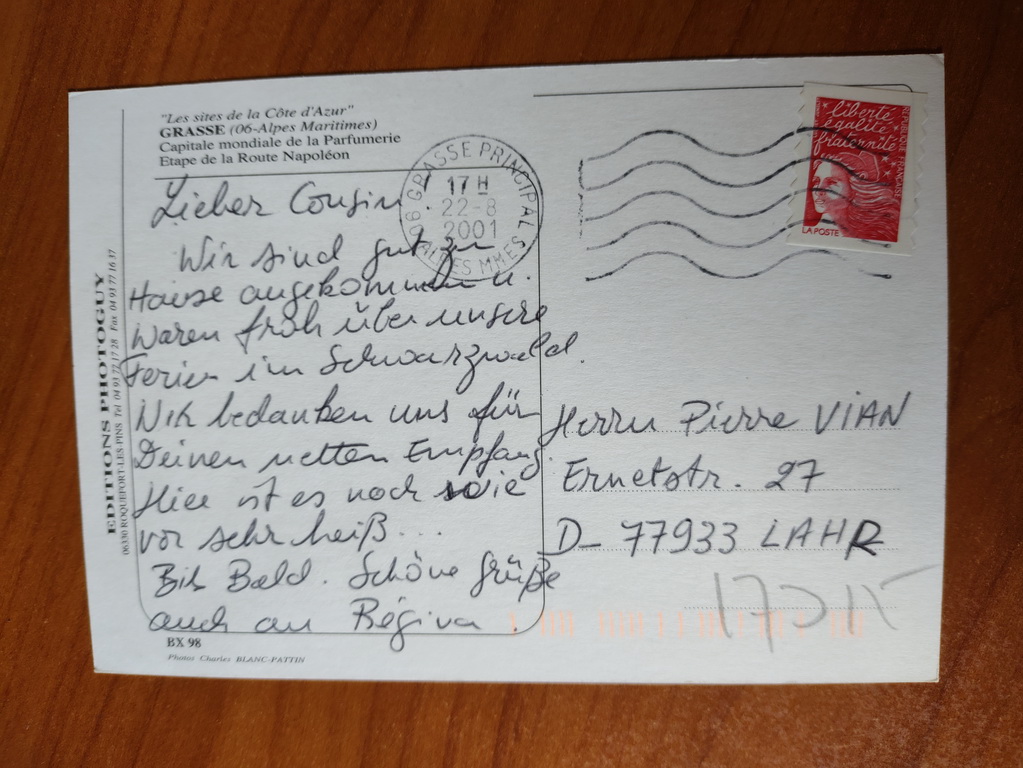 "Les sites de la Côte d'Azur"
GRASSE (06-Alpes Maritimes)
Capitale mondiale de la Parfumerie
Etape de la Route Napoléon
Lieber Cousin.
Wir sind gut zu
Hause angekommen.
Waren froh über unsere
Ferien im Schwarzwald.
Wir bedanken uns für
Deinen netten Empfang.
Hier ist es noch wie
vor sehr heiß...
Bis Bald. Schöne Grüße
auch an Régina.
BX 98
Photos Charles BLANC-PATTIN
EDITIONS PHOTOGUY
06330 ROQUEFORT-LES-PINS Tel 04 93 77 17 28 Fax 04 93 77 16 37
06 GRASSE PRINCIPAL
17 H
22-8
2001
ALPES MMES
liberté
égalité
fraternité
REPUBLIQUE FRANÇAISE
LA POSTE
Herrn Pierre VIAN
Ernetstr. 27
D- 77933 LAHR